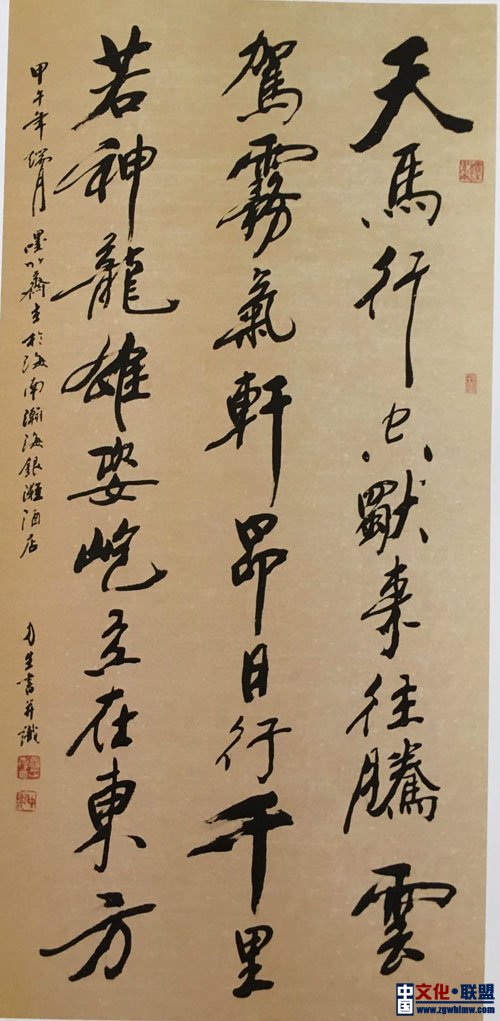 天馬行空獨來往騰雲
駕霧氣軒昂日行千里
若神龍雄姿屹立在東方
甲午年端月 齋主於海南瀚海銀灘酒店
生書并識
中国文化·联盟
www.zgwhlmw.com